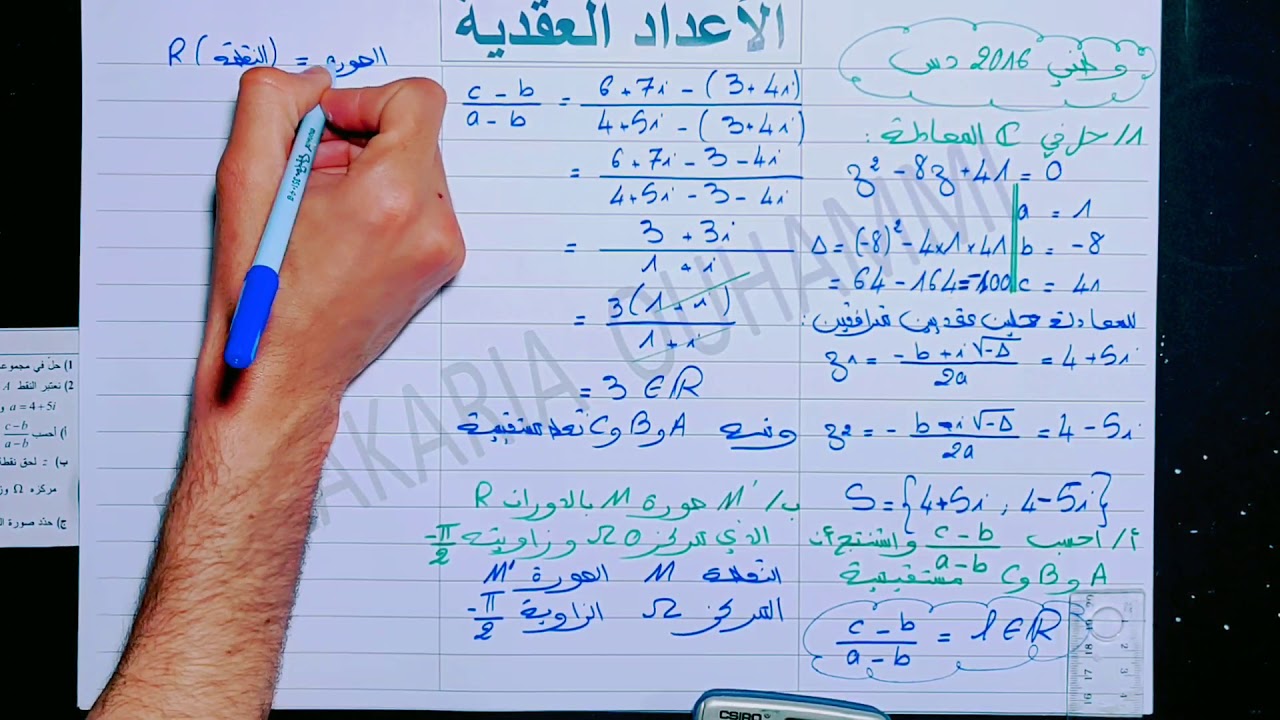 الأعداد العقدية
وطني 2016 دس
1/ حل في C المعادلة :
z² - 8z + 41 = 0
a = 1
Δ = (-8)² - 4×1×41
b = -8
= 64 - 164 = -100
c = 41
للمعادلة حلين عقديين مترافقين :
z1 = (-b + i√-Δ) / 2a = 4 + 5i
z2 = - (b - i√-Δ) / 2a = 4 - 5i
S = {4+5i ; 4-5i}
أ/ احسب (c - b) / (a - b) واستنتج أن
A و B و C مستقيمية
(c - b) / (a - b) = l ∈ ℝ
(c - b) / (a - b) = (6 + 7i - (3 + 4i)) / (4 + 5i - (3 + 4i))
= (6 + 7i - 3 - 4i) / (4 + 5i - 3 - 4i)
= (3 + 3i) / (1 + i)
= 3(1 + i) / (1 + i)
= 3 ∈ ℝ
ومنه A و B و C نقط مستقيمية
ب/ M' صورة M بالدوران R
الذي مركزه Ω وزاويته -π/2
النقطة M الصورة M'
المركز Ω الزاوية -π/2
R (النقطة) = الصورة
1) حل في مجموعة
2) نعتبر النقط A
a = 4 + 5i و
أ) أحسب (c - b) / (a - b)
ب) z لحق نقطة
مركزه Ω وز
ج) حدد صورة ال
CSIRO
ZAKARIA OUHAMMI